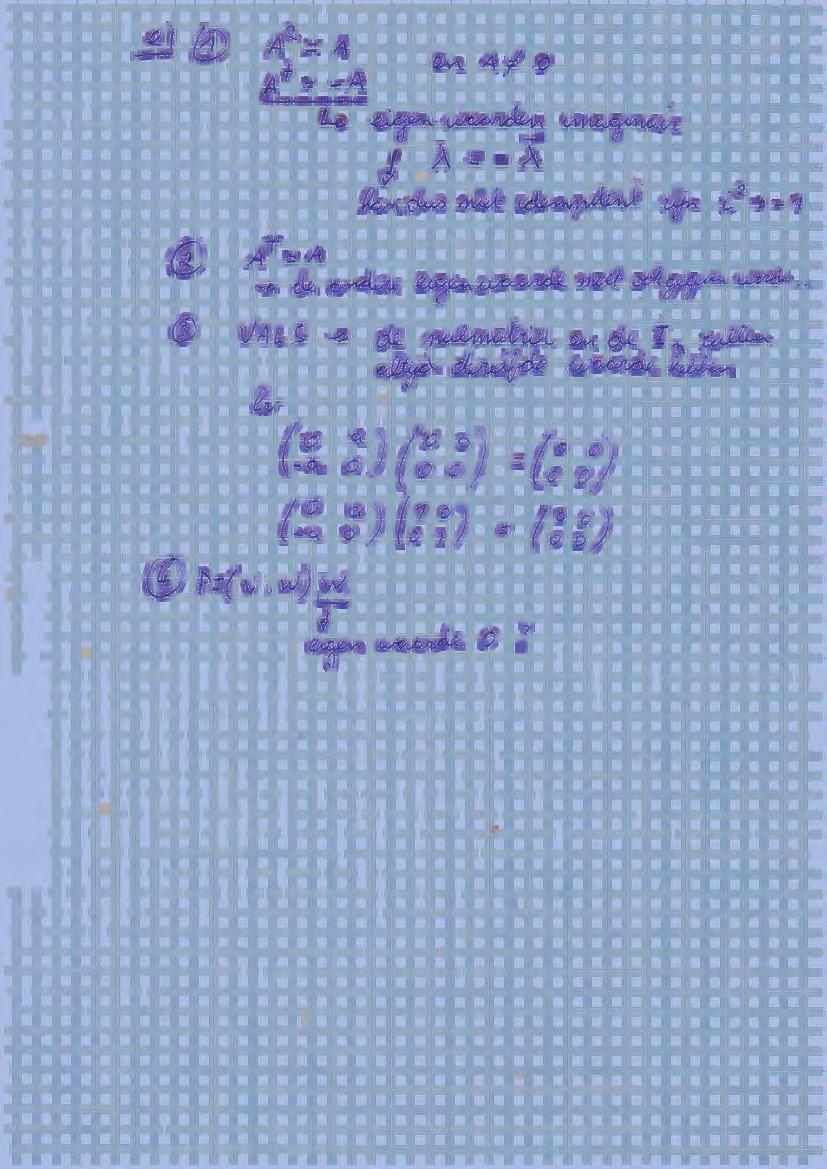 a) ① A² = A en A ≠ 0
A^T = -A
↳ eigenwaarden imaginair
↓ λ = -λ̄
kan dus niet idempotent zijn i² = -1
② A^T = A
→ de andere eigenwaarde niet
③ VALS → de nulmatrix en de I₂ zullen
altijd dezelfde waarde hebben
bv
(0 a; -a 0) (0 0; 0 0) = (0 0; 0 0)
(0 a; -a 0) (1 0; 0 1) = (0 0; 0 0)
④ P=(v.w) w
↓
eigenwaarde 0 ?